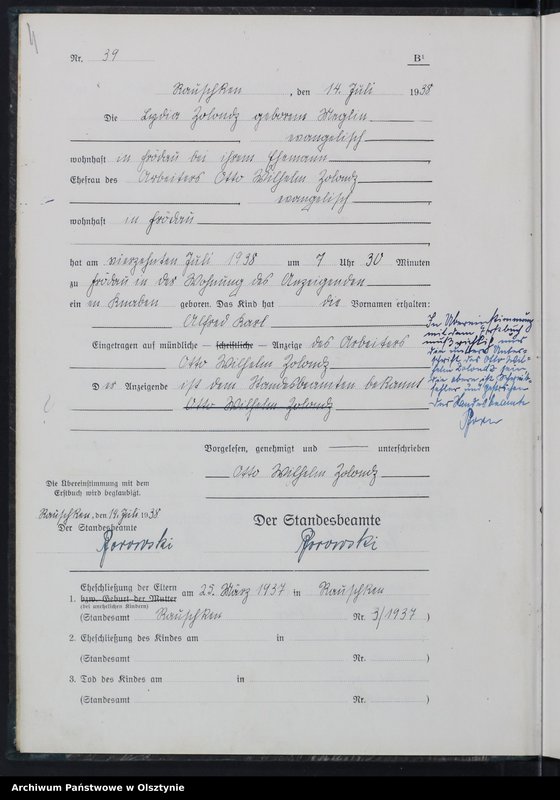 Nr. 39 B¹
Rauschken, den 14. Juli 1938
Die Lydia Zolondz geborene Meglin
, evangelisch,
wohnhaft in Frödau bei ihrem Ehemann,
Ehefrau des Arbeiters Otto Wilhelm Zolondz
, evangelisch,
wohnhaft in Frödau
hat am vierzehnten Juli 1938 um 7 Uhr 30 Minuten
zu Frödau in der Wohnung des Anzeigenden
ein en Knaben geboren. Das Kind hat die Vornamen erhalten:
Alfred Karl
Eingetragen auf mündliche – schriftliche – Anzeige des Arbeiters
Otto Wilhelm Zolondz
Der Anzeigende ist dem Standesbeamten bekannt
Otto Wilhelm Zolondz
In Übereinstimmung
mit dem Erstbuch
muß richtig nur
die untere Unter-
schrift des Otto Wil-
helm Zolondz sein,
die obere ist Schreib-
fehler und gestrichen
Der Standesbeamte
Vorgelesen, genehmigt und unterschrieben
Otto Wilhelm Zolondz
Die Übereinstimmung mit dem
Erstbuch wird beglaubigt.
Rauschken, den 14. Juli 1938
Der Standesbeamte
Borowski
Der Standesbeamte
Borowski
1. Eheschließung der Eltern am 25. März 1937 in Rauschken
bzw. Geburt der Mutter
(bei unehelichen Kindern)
(Standesamt Rauschken Nr. 3/1937)
2. Eheschließung des Kindes am in
(Standesamt Nr. )
3. Tod des Kindes am in
(Standesamt Nr. )
Archiwum Państwowe w Olsztynie